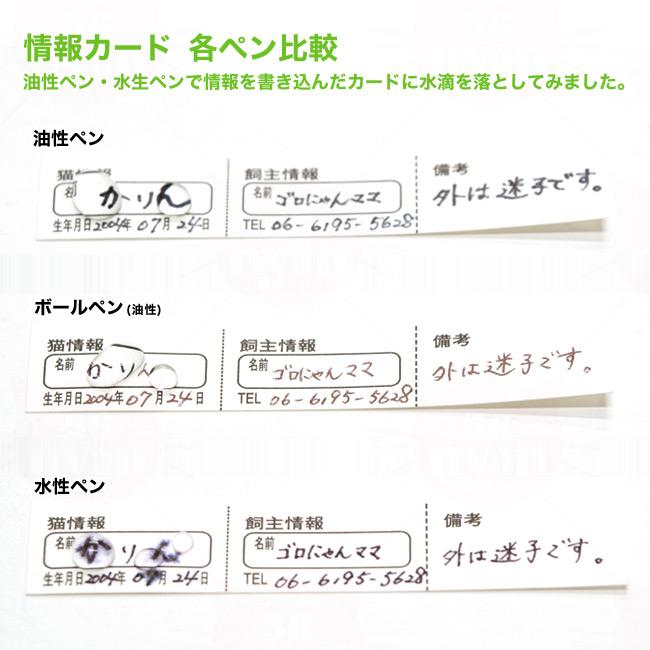 情報カード 各ペン比較
油性ペン・水生ペンで情報を書き込んだカードに水滴を落としてみました。
油性ペン
猫情報 飼主情報 備考
名 かりん 名前 ゴロにゃんママ 外は迷子です。
生年月日2004年 07月 24日 TEL 06-6195-5628
ボールペン(油性)
猫情報 飼主情報 備考
名前 かりん 名前 ゴロにゃんママ 外は迷子です。
生年月日2004年 07月 24日 TEL 06-6195-5628
水性ペン
猫情報 飼主情報 備考
名前 かりん 名前 ゴロにゃんママ 外は迷子です。
生年月日2004年 07月 24日 TEL 06-6195-5628